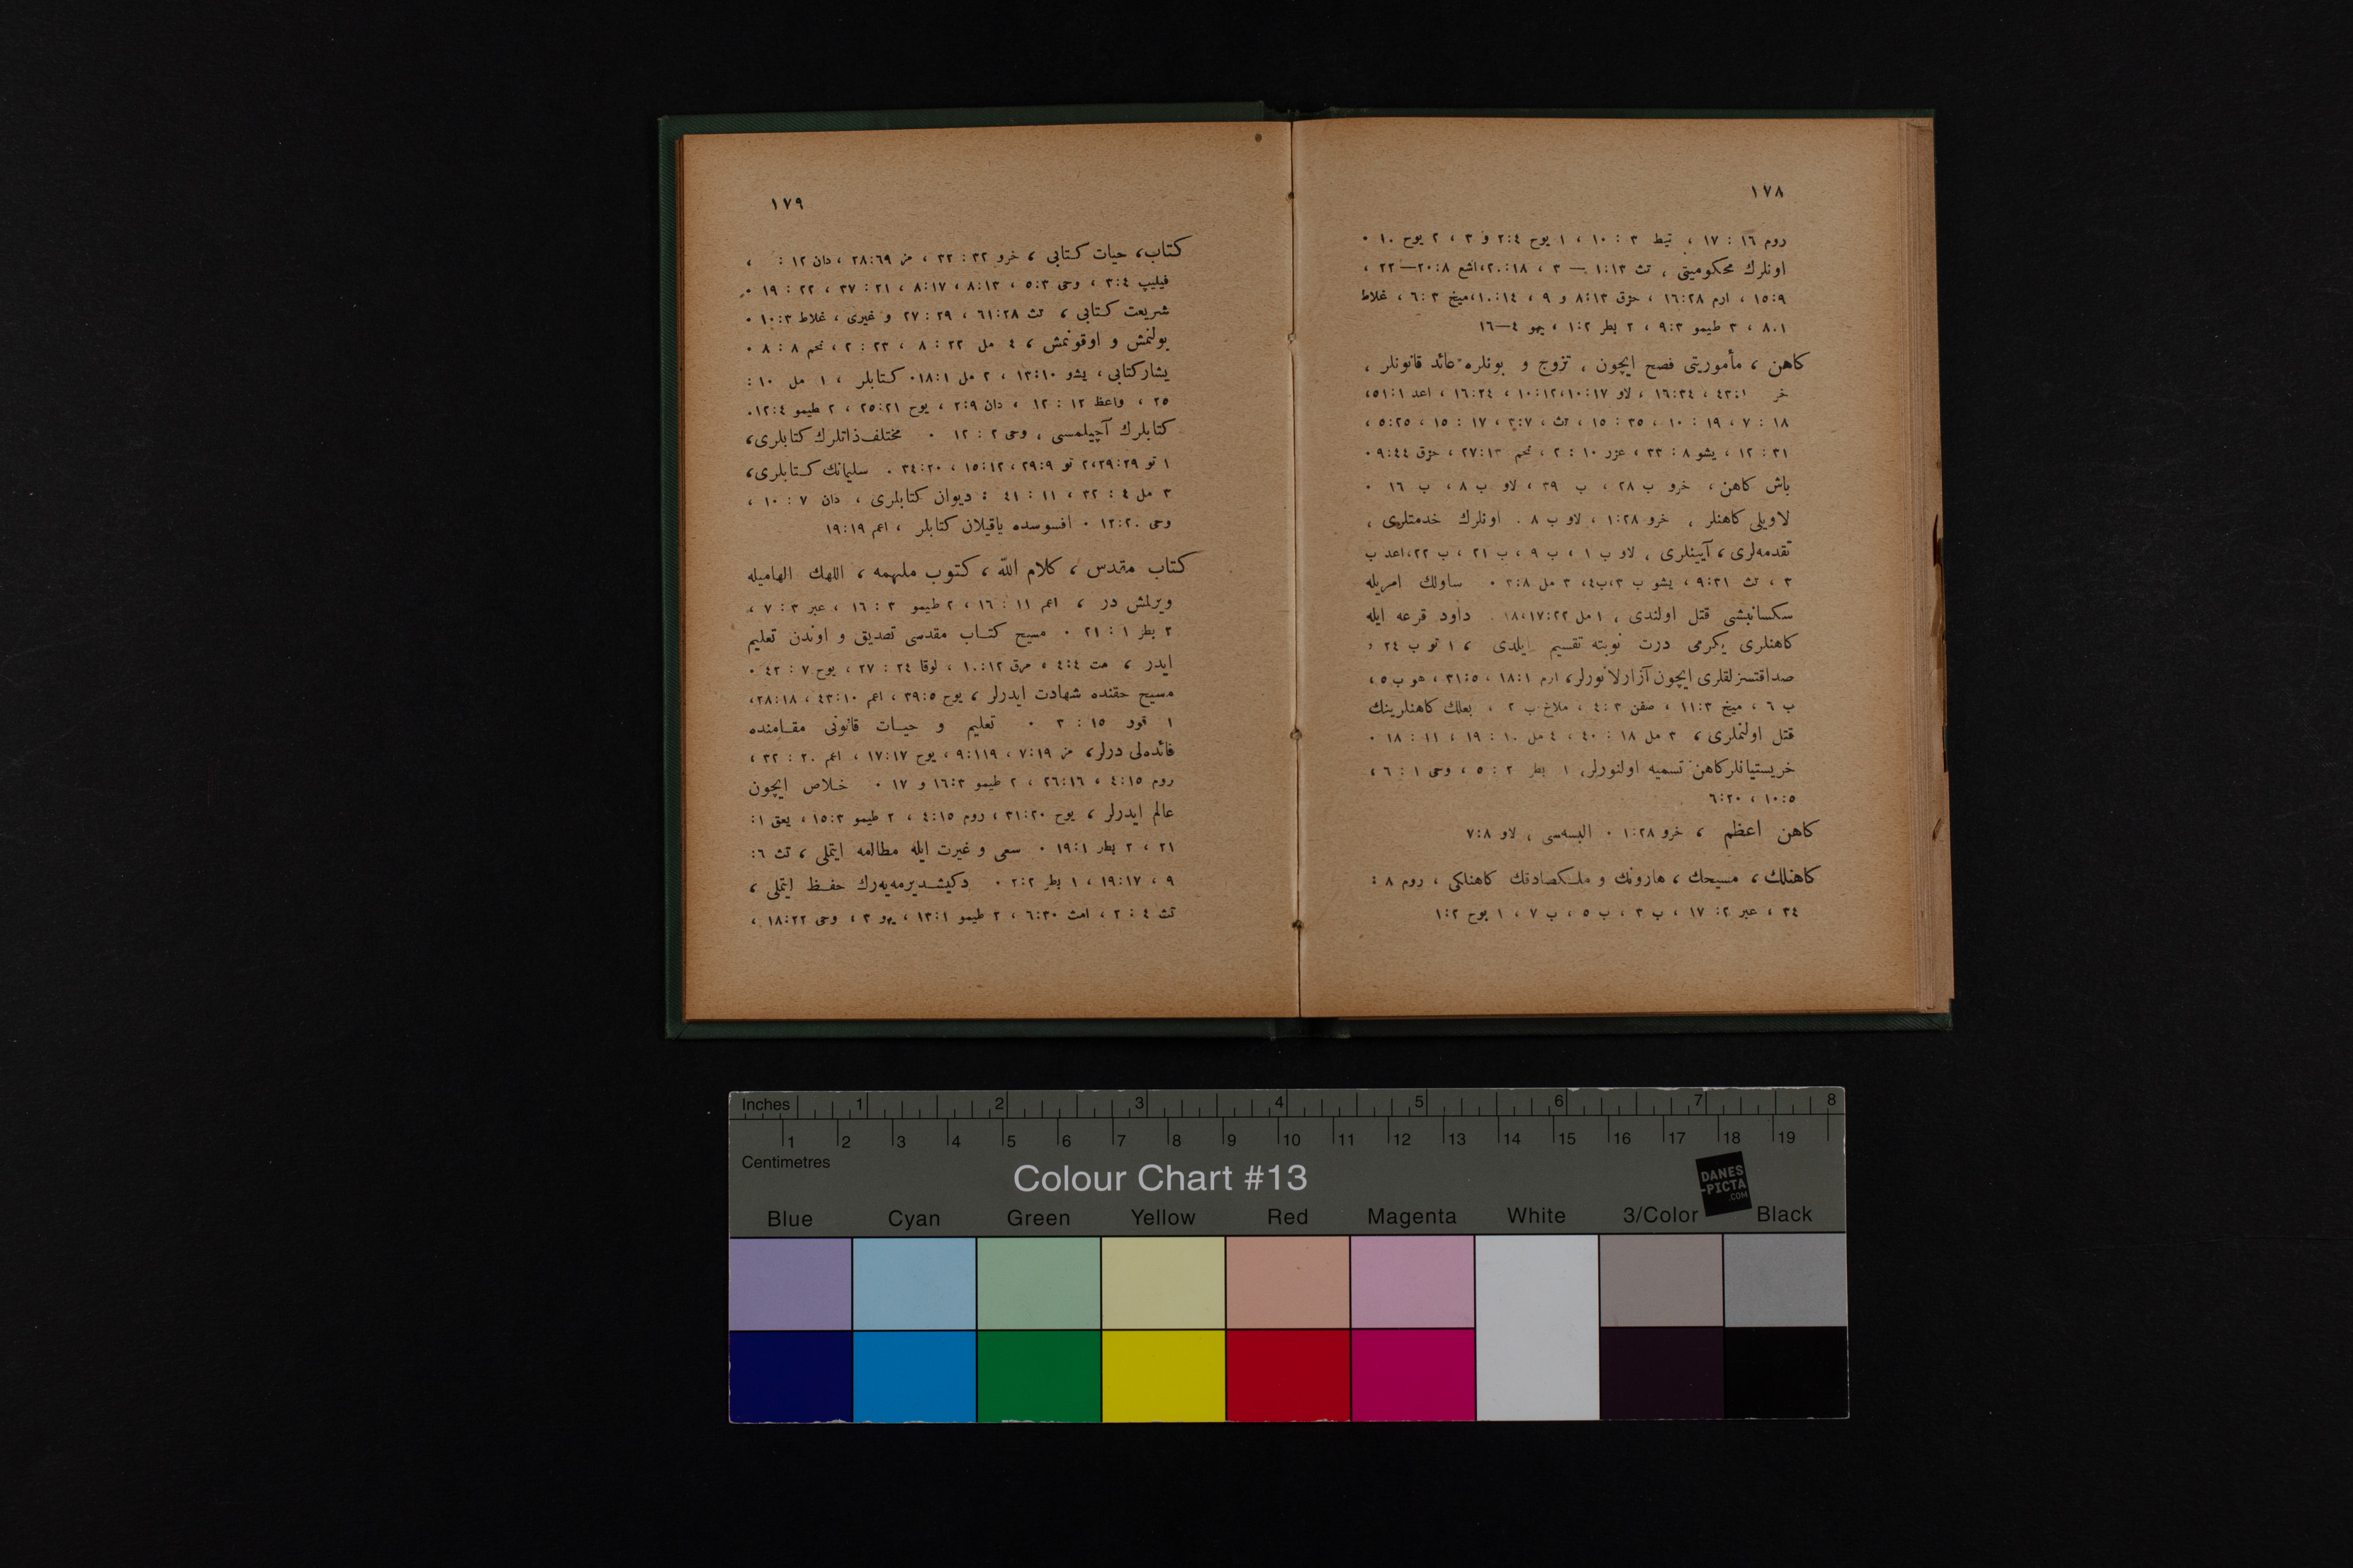 ١٧٨
روم ١٦ : ١٧ ، تيط ٣ : ١٠ ، ١ يوح ٢:٤ و ٣ ، ٢ يوح ١٠ ٠
اونلرك محكوميتى ، تث ١:١٣ — ٣ ، ٢٠:١٨ ، اشع ٢٠:٨—٢٢ ،
١٥:٩ ، ارم ١٦:٢٨ ، حزق ٨:١٣ و ٩ ، ١٠:١٤ ، ميخ ٦:٣ ، غلاط
٨،١ ، ٢ طيمو ٩:٣ ، ٢ بطر ١:٢ ، يهو ٤—١٦
كاهن ، مأموريتى فصح ايچون ، تزوج و بونلره عائد قانونلر ،
خر ٤٣:١ ، ١٦:٣٤ ، لاو ١٠:١٧ ، ١٠:١٢ ، ١٦:٢٤ ، اعد ٥١:١ ،
١٨ : ٧ ، ١٩ : ١٠ ، ٣٥ : ١٥ ، تث ، ٣:٧ ، ١٧ : ١٥ ، ٥:٢٥ ،
٣١ : ١٢ ، يشو ٨ : ٣٣ ، عزر ١٠ : ٢ ، نحم ٢٧:١٣ ، حزق ٩:٤٤ ٠
باش كاهن ، خرو ب ٢٨ ، ب ٣٩ ، لاو ب ٨ ، ب ١٦ ٠
لاويلى كاهنلر ، خرو ١:٢٨ ، لاو ب ٨ . اونلرك خدمتلرى ،
تقدمه‌لرى ، آيينلرى ، لاو ب ١ ، ب ٩ ، ب ٢١ ، ب ٢٢ ، اعد ب
٣ ، تث ٩:٣١ ، يشو ب ٣ ، ب٤ ، ٣ مل ٣:٨ ٠ ساولك امريله
سكسانبشى قتل اولندى ، ١ مل ١٧:٢٢ ، ١٨ . داود قرعه ايله
كاهنلرى يكرمى درت نوبته تقسيم ايلدى ، ١ تو ب ٢٤ ،
صداقتسزلقلرى ايچون آزارلانورلر ، ارم ١٨:١ ، ٣١:٥ ، هو ب ٥ ،
ب ٦ ، ميخ ١١:٣ ، صفن ٤:٣ ، ملاخ ب ٢ ، بعلك كاهنلرينك
قتل اولنملرى ، ٣ مل ١٨ : ٤٠ ، ٤ مل ١٠ : ١٩ ، ١١ : ١٨ ٠
خريستيانلر كاهن تسميه اولنورلر ، ١ بطر ٢ : ٥ ، وحى ١ : ٦ ،
١٠:٥ ، ٦:٢٠
كاهن اعظم ، خرو ١:٢٨ ٠ البسه‌سى ، لاو ٧:٨
كاهنلك ، مسيحك ، هارونك و ملكصادقك كاهنلكى ، روم ٨ :
٣٤ ، عبر ٢: ١٧ ، ب ٣ ، ب ٥ ، ب ٧ ، ١ يوح ١:٢
١٧٩
كتاب ، حيات كتابى ، خرو ٣٢ : ٣٢ ، مز ٢٨:٦٩ ، دان ١٢ : ،
فيليپ ٣:٤ ، وحى ٥:٣ ، ٨:١٣ ، ٨:١٧ ، ٢١ : ٢٧ ، ٢٢ : ١٩ ٠
شريعت كتابى ، تث ٦١:٢٨ ، ٢٩ : ٢٧ و غيرى ، غلاط ١٠:٣ ٠
بولنمش و اوقونمش ، ٤ مل ٢٢ : ٨ ، ٢٣ : ٢ ، نحم ٨ : ٨ ٠
يشار كتابى ، يشو ١٣:١٠ ، ٢ مل ١٨:١ ٠ كتابلر ، ١ مل ١٠ :
٢٥ ، واعظ ١٢ : ١٢ ، دان ٢:٩ ، يوح ٢٥:٢١ ، ٢ طيمو ١٣:٤ ٠
كتابلرك آچيلمسى ، وحى ٢ : ١٢ ٠ مختلف ذاتلرك كتابلرى ،
١ تو ٢٩:٢٩ ، ٢ تو ٢٩:٩ ، ١٥:١٢ ، ٣٤:٢٠ ٠ سليمانك كتابلرى ،
٣ مل ٤ : ٣٢ ، ١١ : ٤١ : ديوان كتابلرى ، دان ٧ : ١٠ ،
وحى ١٢:٢٠ ٠ افسوسده ياقيلان كتابلر ، اعم ١٩:١٩
كتاب مقدس ، كلام اللّه ، كتوب ملهمه ، اللهك الهاميله
ويرلمش در ، اعم ١١ : ١٦ ، ٢ طيمو ٣ : ١٦ ، عبر ٣ : ٧ ،
٢ بطر ١ : ٢١ ٠ مسيح كتاب مقدسى تصديق و اوندن تعليم
ايدر ، مت ٤:٤ ، مرق ١٠:١٢ ، لوقا ٢٤ : ٢٧ ، يوح ٧ : ٤٢ ٠
مسيح حقنده شهادت ايدرلر ، يوح ٣٩:٥ ، اعم ٤٣:١٠ ، ٢٨:١٨ ،
١ قور ١٥ : ٣ ٠ تعليم و حيات قانونى مقامنده
فائده‌لى درلر ، مز ٧:١٩ ، ٩:١١٩ ، يوح ١٧:١٧ ، اعم ٢٠ : ٣٢ ،
روم ٤:١٥ ، ٢٦:١٦ ، ٢ طيمو ١٦:٣ و ١٧ ٠ خلاص ايچون
عالم ايدرلر ، يوح ٣١:٢٠ ، روم ٤:١٥ ، ٢ طيمو ١٥:٣ ، يعق ١:
٢١ ، ٢ بطر ١٩:١ ٠ سعى و غيرت ايله مطالعه ايتملى ، تث ٦:
٩ ، ١٩:١٧ ، ١ بطر ٢:٢ ٠ دكيشديرمه‌يه‌رك حفظ ايتملى ،
تث ٤ : ٢ ، امث ٦:٣٠ ، ٢ طيمو ١٣:١ ، يهو ٣ ، وحى ١٨:٢٢ ،
Inches 1 2 3 4 5 6 7 8
1 2 3 4 5 6 7 8 9 10 11 12 13 14 15 16 17 18 19
Centimetres
Colour Chart #13
DANES
-PICTA
.COM
Blue Cyan Green Yellow Red Magenta White 3/Color Black